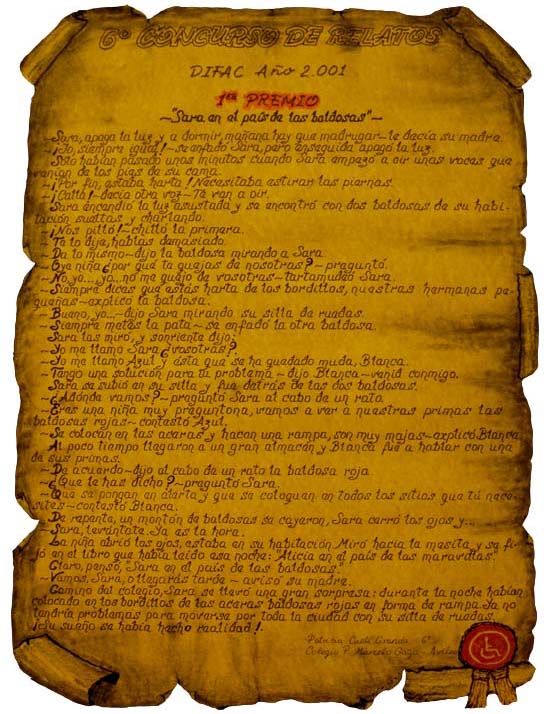 6º CONCURSO DE RELATOS
DIFAC Año 2.001
1er PREMIO
~"Sara en el país de las baldosas"~
~Sara, apaga la luz y a dormir, mañana hay que madrugar~ le decía su madre.
~¡Jo, siempre igual!~ se enfadó Sara, pero enseguida apagó la luz.
Sólo habían pasado unos minutos cuando Sara empezó a oir unas voces que
venían de los pies de su cama.
~¡Por fin, estaba harta! Necesitaba estirar las piernas.
~¡Calla!~ decía otra voz~ Te van a oir.
Sara encendió la luz asustada y se encontró con dos baldosas de su habi-
tación sueltas y charlando.
~¡Nos pilló!~ chilló la primera.
~Te lo dije, hablas demasiado.
~Da lo mismo~ dijo la baldosa mirando a Sara.
~Oye niña ¿por qué te quejas de nosotras?~ preguntó.
~No, yo... yo... no me quejo de vosotras~ tartamudeó Sara.
~Siempre dices que estás harta de los bordillos, nuestras hermanas pe-
queñas~ explicó la baldosa.
~Bueno, yo...~ dijo Sara mirando su silla de ruedas.
~Siempre metes la pata~ se enfadó la otra baldosa.
Sara las miró, y sonriente dijo:
~Yo me llamo Sara ¿vosotras?.
~Yo me llamo Azul y ésta que se ha quedado muda, Blanca.
~Tengo una solución para tu problema~ dijo Blanca~ venid conmigo.
Sara se subió en su silla y fue detrás de las dos baldosas.
~¿Adónde vamos?~ preguntó Sara al cabo de un rato.
~Eres una niña muy preguntona, vamos a ver a nuestras primas las
baldosas rojas~ contestó Azul.
~Se colocan en las aceras y hacen una rampa, son muy majas~ explicó Blanca
Al poco tiempo llegaron a un gran almacén y Blanca fue a hablar con una
de sus primas.
~De acuerdo~ dijo al cabo de un rato la baldosa roja.
~¿Que les has dicho?~ preguntó Sara.
~Que se pongan en alerta y que se coloquen en todos los sitios que tú nece-
sites~ contestó Blanca.
De repente, un montón de baldosas se cayeron, Sara cerró los ojos y...
~Sara, levántate. Ya es la hora.
La niña abrió los ojos, estaba en su habitación. Miró hacia la mesita, y se fi-
jó en el libro que había leído esa noche: "Alicia en el país de las maravillas".
Claro, pensó, "Sara en el país de las baldosas".
~Vamos, Sara, o llegarás tarde~ avisó su madre.
Camino del colegio, Sara se llevó una gran sorpresa: durante la noche habían
colocado en los bordillos de las aceras baldosas rojas en forma de rampa. Ya no
tendría problemas para moverse por toda la ciudad con su silla de ruedas.
¡¡Su sueño se había hecho realidad!.
Colegio P. Marcelo Gago - Avilés